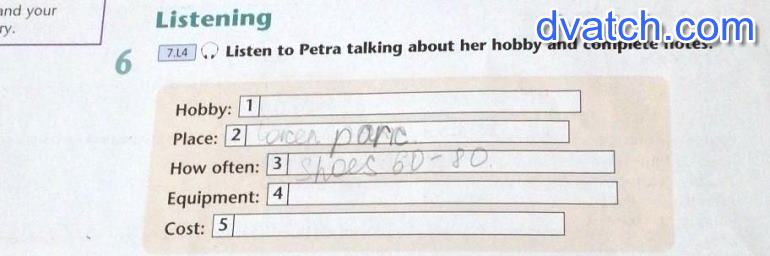 and your
ry.
Listening
dvatch.com
6 7.L4 Listen to Petra talking about her hobby and complete notes.
Hobby: 1
Place: 2 parc.
How often: 3 Shoes 60-80.
Equipment: 4
Cost: 5